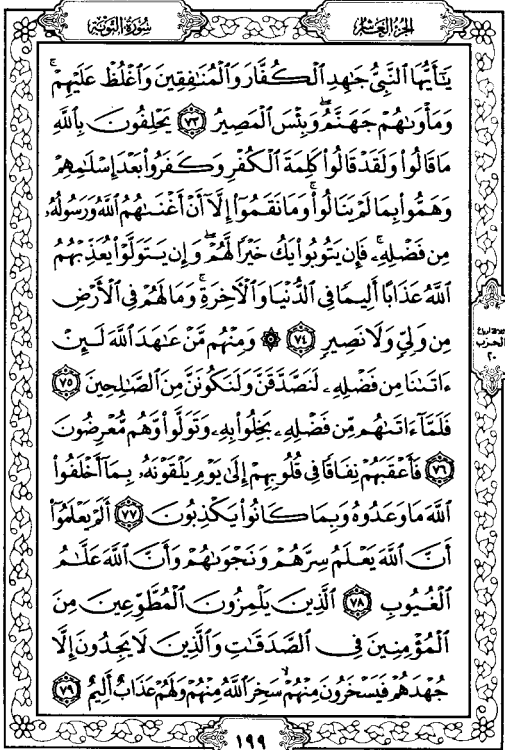 سُورَةُ التَّوْبَةِ
الجُزْءُ العَاشِرُ
يَٰٓأَيُّهَا ٱلنَّبِىُّ جَٰهِدِ ٱلْكُفَّارَ وَٱلْمُنَٰفِقِينَ وَٱغْلُظْ عَلَيْهِمْ ۚ
وَمَأْوَىٰهُمْ جَهَنَّمُ ۖ وَبِئْسَ ٱلْمَصِيرُ ٧٣ يَحْلِفُونَ بِٱللَّهِ
مَا قَالُوا۟ وَلَقَدْ قَالُوا۟ كَلِمَةَ ٱلْكُفْرِ وَكَفَرُوا۟ بَعْدَ إِسْلَٰمِهِمْ
وَهَمُّوا۟ بِمَا لَمْ يَنَالُوا۟ ۚ وَمَا نَقَمُوٓا۟ إِلَّآ أَنْ أَغْنَىٰهُمُ ٱللَّهُ وَرَسُولُهُۥ
مِن فَضْلِهِۦ ۚ فَإِن يَتُوبُوا۟ يَكُ خَيْرًا لَّهُمْ ۖ وَإِن يَتَوَلَّوْا۟ يُعَذِّبْهُمُ
ٱللَّهُ عَذَابًا أَلِيمًا فِى ٱلدُّنْيَا وَٱلْءَاخِرَةِ ۚ وَمَا لَهُمْ فِى ٱلْأَرْضِ
مِن وَلِىٍّ وَلَا نَصِيرٍ ٧٤ ۞ وَمِنْهُم مَّنْ عَٰهَدَ ٱللَّهَ لَئِنْ
ءَاتَىٰنَا مِن فَضْلِهِۦ لَنَصَّدَّقَنَّ وَلَنَكُونَنَّ مِنَ ٱلصَّٰلِحِينَ ٧٥
فَلَمَّآ ءَاتَىٰهُم مِّن فَضْلِهِۦ بَخِلُوا۟ بِهِۦ وَتَوَلَّوا۟ وَّهُم مُّعْرِضُونَ
٧٦ فَأَعْقَبَهُمْ نِفَاقًا فِى قُلُوبِهِمْ إِلَىٰ يَوْمِ يَلْقَوْنَهُۥ بِمَآ أَخْلَفُوا۟
ٱللَّهَ مَا وَعَدُوهُ وَبِمَا كَانُوا۟ يَكْذِبُونَ ٧٧ أَلَمْ يَعْلَمُوٓا۟
أَنَّ ٱللَّهَ يَعْلَمُ سِرَّهُمْ وَنَجْوَىٰهُمْ وَأَنَّ ٱللَّهَ عَلَّٰمُ
ٱلْغُيُوبِ ٧٨ ٱلَّذِينَ يَلْمِزُونَ ٱلْمُطَّوِّعِينَ مِنَ
ٱلْمُؤْمِنِينَ فِى ٱلصَّدَقَٰتِ وَٱلَّذِينَ لَا يَجِدُونَ إِلَّا
جُهْدَهُمْ فَيَسْخَرُونَ مِنْهُمْ ۙ سَخِرَ ٱللَّهُ مِنْهُمْ وَلَهُمْ عَذَابٌ أَلِيمٌ ٧٩
الحزب
٢٠
١٩٩